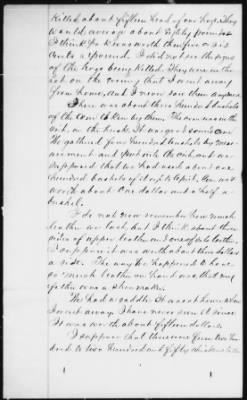 killed about fifteen head of our hogs. They
would average about eighty pounds
I think pork was worth then five or six
cents a pound. I did not see the signs
of the hogs being killed. They were in the
lot on the evening that I went away
from home, but I never saw them any more
There was about three hundred bushels
of the corn taken by them. The corn was in the
crib, in the husk. It was good sound corn
We gathered four hundred bushels by meas-
urement and put in the crib, and we
supposed that we had used about one
hundred bushels of it up to April. Corn was
worth about one dollar and a half a
bushel.
I do not now remember how much
leather we lost, but I think about three
sides of upper leather and one of sole leather,
I suppose it was worth about three dollars
a side. The way he happened to have
so much leather on hand was, that my
father was a shoe maker.
We had a saddle. It was at home when
I went away. I have never seen it since
It was worth about fifteen dollars.
I suppose that there were from two hun-
dred to two hundred and fifty chickens